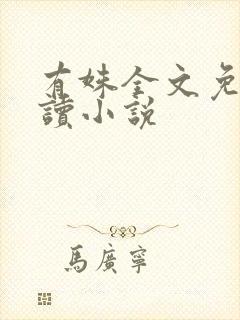 有姝全文免
讀小說
馬廣寧